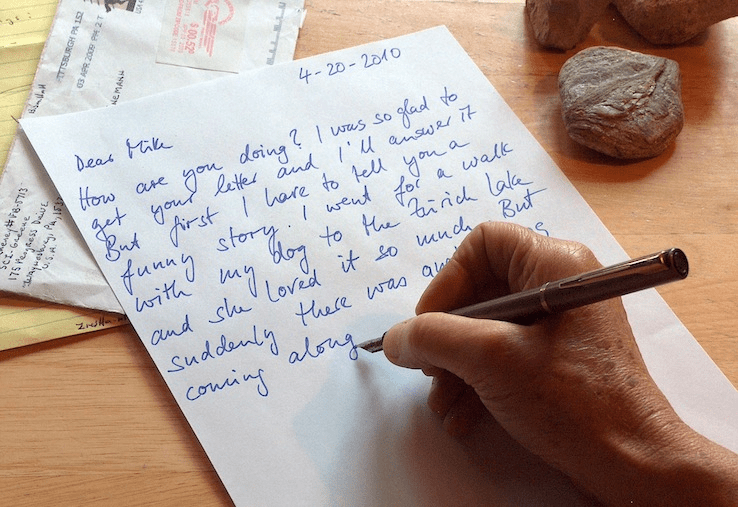 PITTSBURGH PA 152
03 APR 2009 PM 2 T
4-20-2010
Dear Mike
How are you doing? I was so glad to
get your letter and I'll answer it
But first I have to tell you a
funny story. I went for a walk
with my dog to the Zürich Lake
and she loved it so much. But
suddenly there was
coming along
175 Progress Drive
Waynesburg, PA
U.S.A.